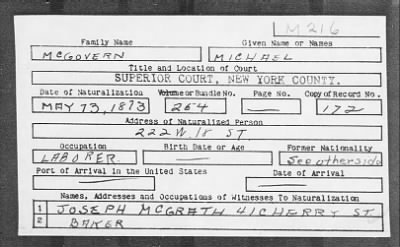 M 216
Family Name Given Name or Names
McGOVERN MICHAEL
Title and Location of Court
SUPERIOR COURT, NEW YORK COUNTY.
Date of Naturalization Volume or Bundle No. Page No. Copy of Record No.
MAY 13, 1873 264 — 172
Address of Naturalized Person
222 W. 18 ST.
Occupation Birth Date or Age Former Nationality
LABORER. — See otherside
Port of Arrival in the United States Date of Arrival
— —
Names, Addresses and Occupations of Witnesses To Naturalization
1 JOSEPH McGRATH 41 CHERRY ST.
2 BAKER